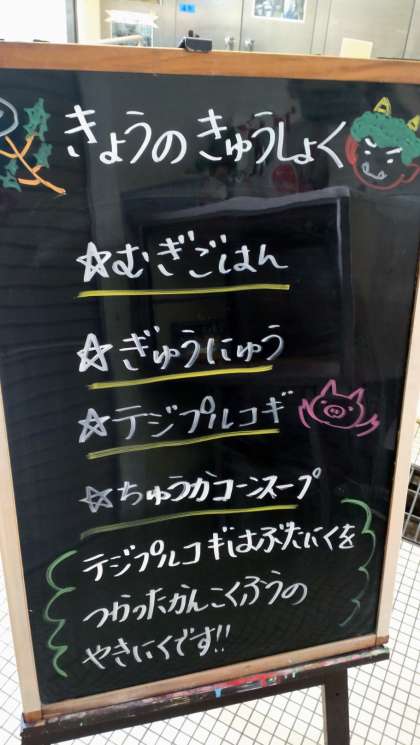 きょうの きゅうしょく
☆むぎごはん
☆ぎゅうにゅう
☆テジプルコギ
☆ちゅうかコーンスープ
テジプルコギはぶたにくを
つかったかんこくふうの
やきにくです!!